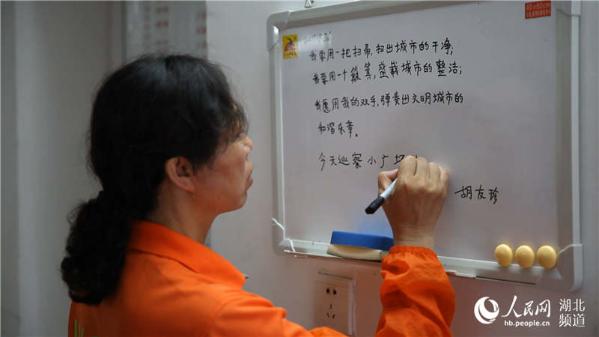 我要用一把扫帚,扫出城市的干净;
我要用一个簸箕,盛载城市的整洁;
我愿用我的双手,弹奏出文明城市的
和谐乐章。
今天巡察小广场
胡友珍
人民网
hb.people.cn
湖北
频道